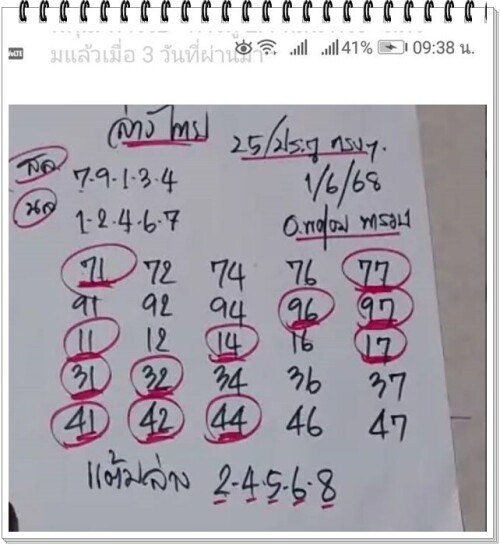 มแล้วเมื่อ 3 วันที่ผ่านมา
41% 09:38 น.
ล่างไทย
25/ประตู
สด 7-9-1-3-4
1/6/68
นด 1-2-4-6-7
71 72 74 76 77
91 92 94 96 97
11 12 14 16 17
31 32 34 36 37
41 42 44 46 47
แต้มล่าง 2-4-5-6-8